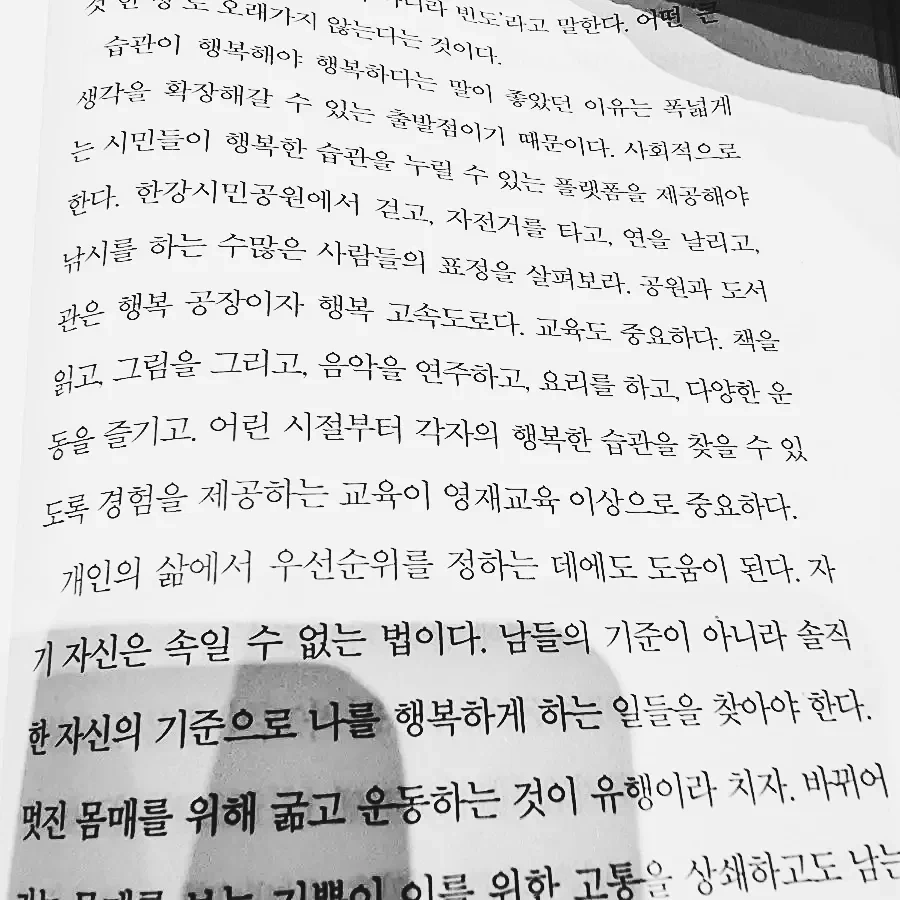 것 한 방'도 오래가지 않는다는 것이다. 아니라 빈도'라고 말한다. 어떤 큰
습관이 행복해야 행복하다는 말이 좋았던 이유는 폭넓게
생각을 확장해갈 수 있는 출발점이기 때문이다. 사회적으로
는 시민들이 행복한 습관을 누릴 수 있는 플랫폼을 제공해야
한다. 한강시민공원에서 걷고, 자전거를 타고, 연을 날리고,
낚시를 하는 수많은 사람들의 표정을 살펴보라. 공원과 도서
관은 행복 공장이자 행복 고속도로다. 교육도 중요하다. 책을
읽고, 그림을 그리고, 음악을 연주하고, 요리를 하고, 다양한 운
동을 즐기고. 어린 시절부터 각자의 행복한 습관을 찾을 수 있
도록 경험을 제공하는 교육이 영재교육 이상으로 중요하다.
개인의 삶에서 우선순위를 정하는 데에도 도움이 된다. 자
기 자신은 속일 수 없는 법이다. 남들의 기준이 아니라 솔직
한 자신의 기준으로 나를 행복하게 하는 일들을 찾아야 한다.
멋진 몸매를 위해 굶고 운동하는 것이 유행이라 치자. 바뀌어
가는 몸매를 보는 기쁨이 이를 위한 고통을 상쇄하고도 남는